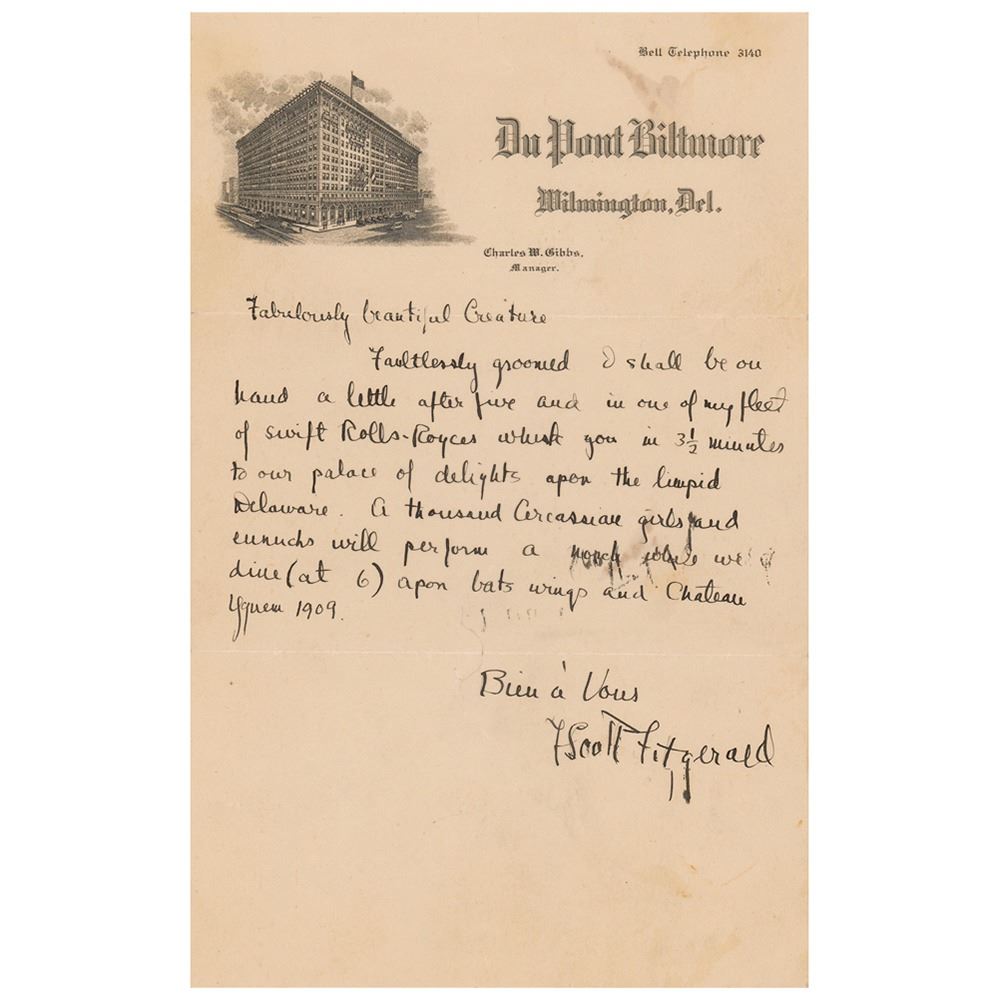 Bell Telephone 3140
Du Pont Biltmore
Wilmington, Del.
Charles W. Gibbs,
Manager.
Fabulously beautiful Creature
Faultlessly groomed I shall be on
hand a little after five and in one of my fleet
of swift Rolls-Royces whisk you in 3½ minutes
to our palace of delights apon the limpid
Delaware. A thousand Circassian girls and
eunuchs will perform a while we
dine (at 6) apon bats wings and Chateau
Yquem 1909.
Bien à Vous
F Scott Fitzgerald